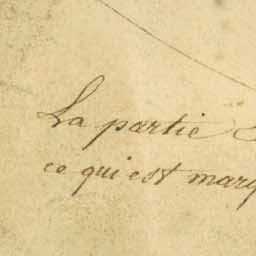 La partie
ce qui est marq